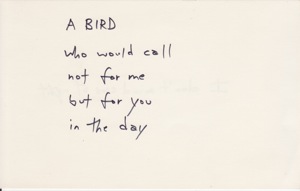 A BIRD
who would call
not for me
but for you
in the day